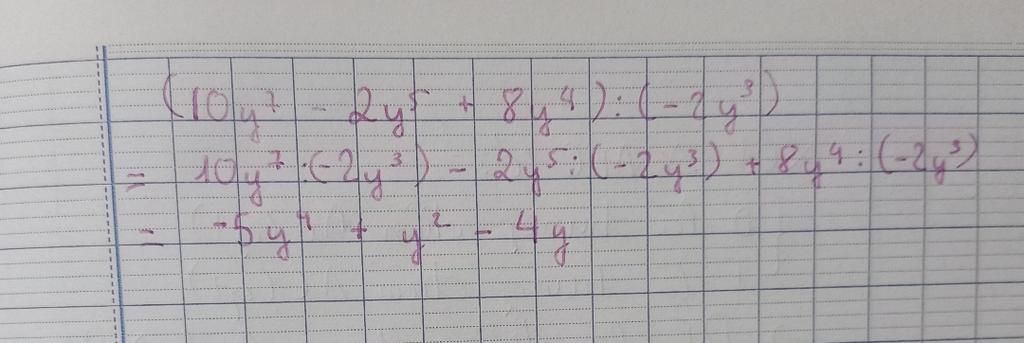 (10y⁷ - 2y⁵ + 8y⁴) : (-2y³)
= 10y⁷ : (-2y³) - 2y⁵ : (-2y³) + 8y⁴ : (-2y³)
= -5y⁴ + y² - 4y